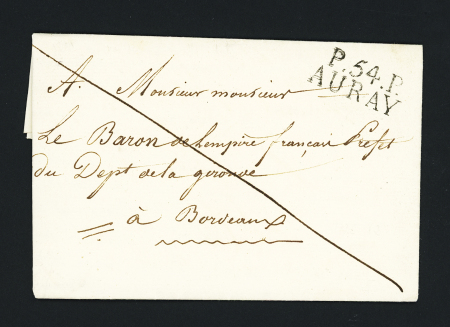 P.54.P.
AURAY
A. Monsieur monsieur
Le Baron de lempire français Prefet
du Dept de la gironde
à Bordeaux